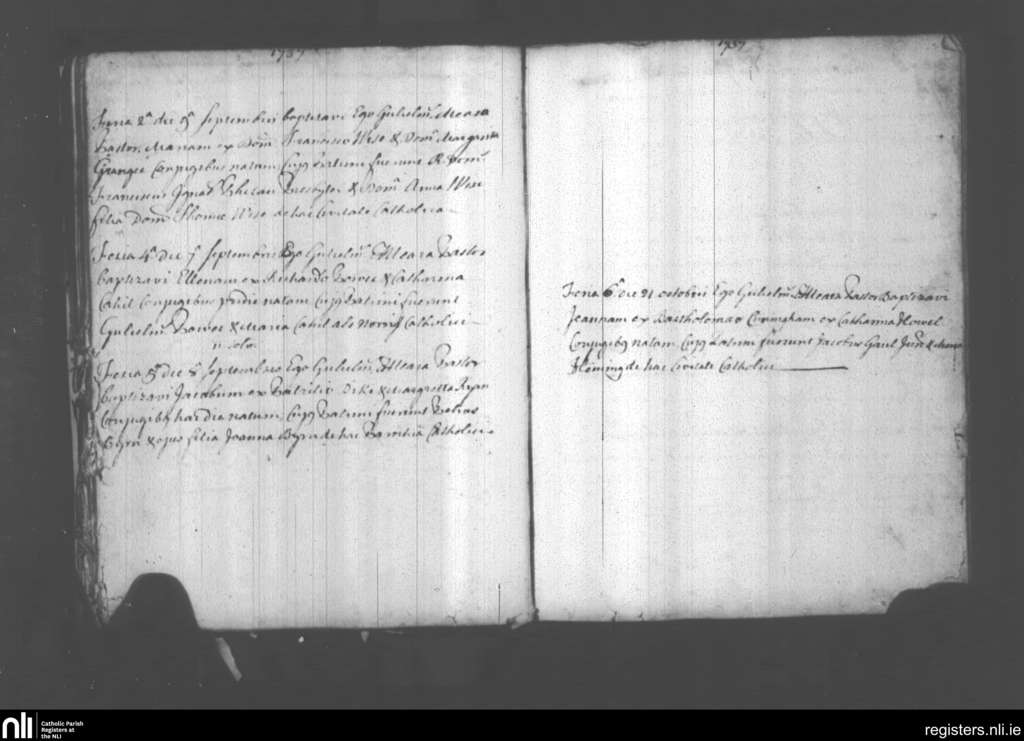 1737
Feria 2ª die 5ª Septembris baptizavi Ego Gulielm' Meara
Pastor Mariam ex Dom: Francisco Wise & Dom: Margarita
Grangee Conjugibus natam, Cujq Patrini fuerunt R. Dom'
Franciscus Ignat' Phelan & Dom' Anna Wise
filia Dom' Thomæ Wise de hac Civitate Catholici
Feria 4ª Die 7 Septembris Ego Gulielm' Meara Pastor
baptizavi Ellenam ex Richardo Power & Catharena
Cahil Conjugibus pridie natam Cujq Patrini fuerunt
Gulielm' Power & Maria Cahil als Norris Catholici
Feria 5ª Die 8 Septembris Ego Gulielm' Meara Pastor
baptizavi Jacobum ex Patritio & Margaretta Ryan
Conjugibq hac die natum, Cujq Patrini fuerunt
Byrn & ejus filia Joanna Byrn de hac Catholici
1737
Feria 6ª die 21 octobris Ego Gulielm' Meara Pastor Baptizavi
Joannam ex Bartholomæo Cuningham ex Catharina Howel
Conjugibq natam Cujq Patrini fuerunt Jacobus Gaul Jun' &
Fleming de hac Civitate Catholici
nli
Catholic Parish
Registers at
the NLI
registers.nli.ie